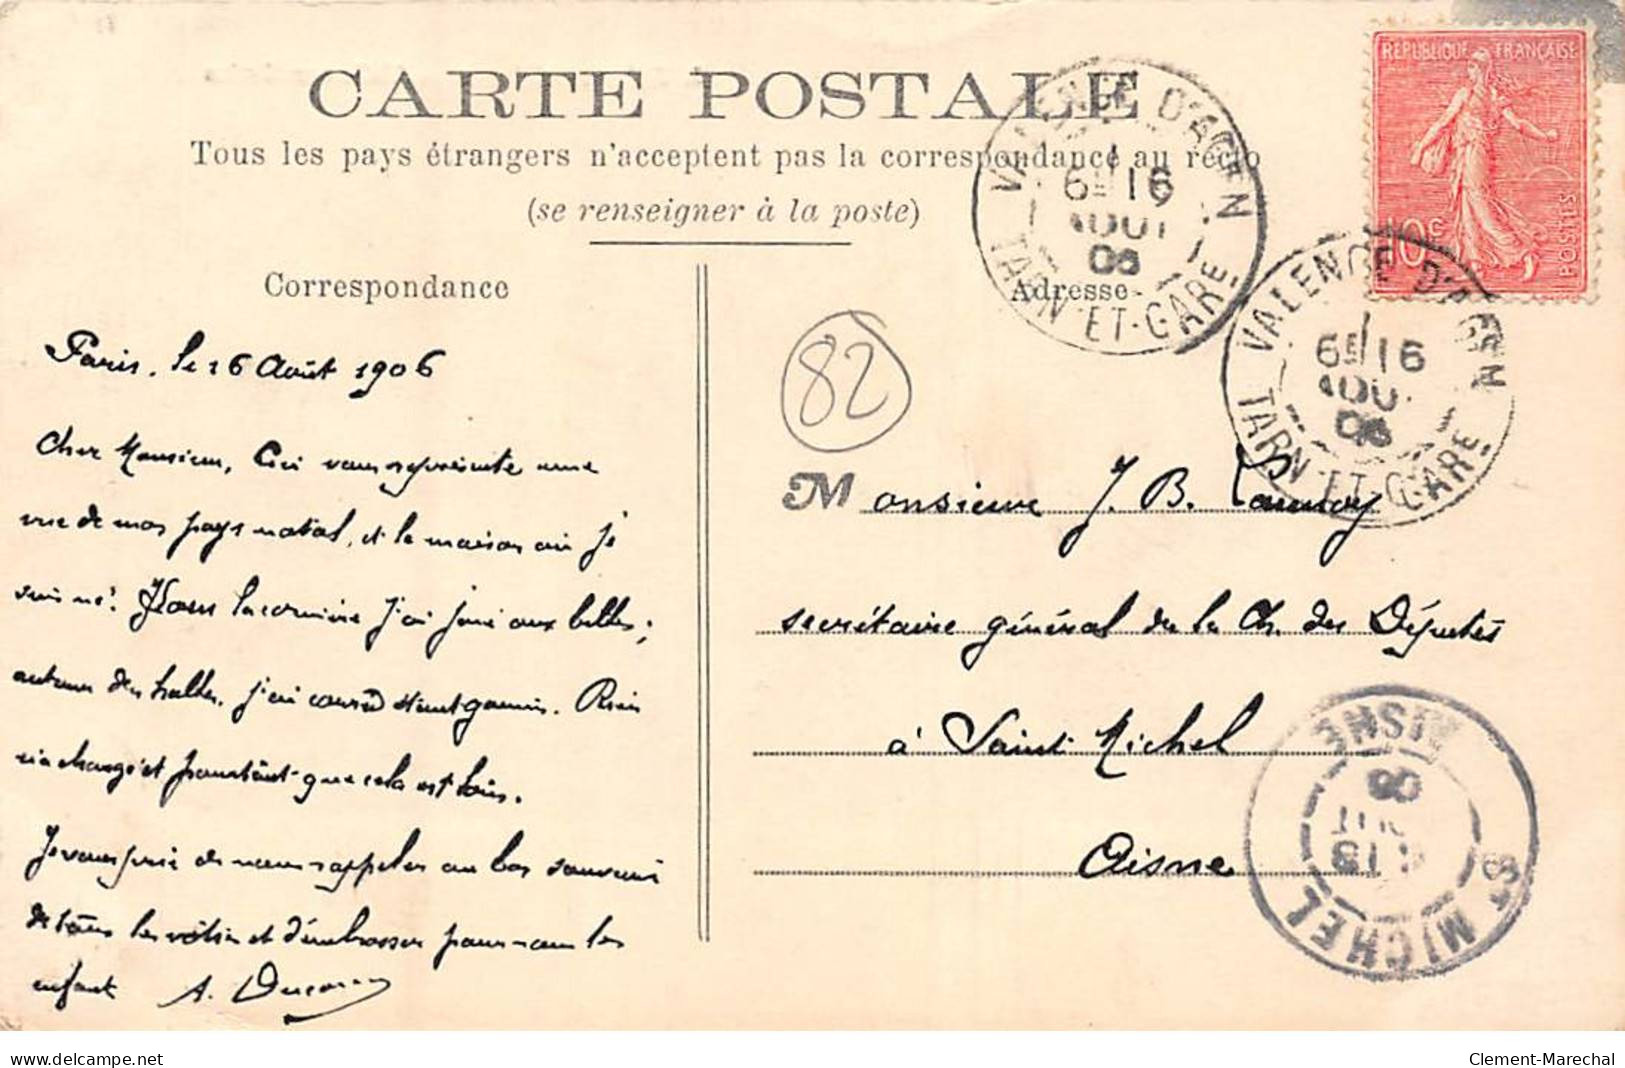 CARTE POSTALE
Tous les pays étrangers n'acceptent pas la correspondance au recto
(se renseigner à la poste)
Correspondance
Adresse
REPUBLIQUE FRANÇAISE
10c
POSTES
VALENCE D'AGEN
6E 16
AOUT
06
TARN-ET-GARE
VALENCE D'AGEN
6E 16
AOU
06
TARN-ET-GARE
82
Paris, le 16 Août 1906
Cher Monsieur, Ceci vous représente une
vue de mon pays natal, et la maison où je
suis né. Dans la cornière j'ai joué aux billes;
autour des halles, j'ai couru étant gamin. Rien
n'a changé et pourtant que cela est loin.
Je vous prie de nous rappeler au bon souvenir
de tous les vôtres et d'embrasser pour nous les
enfants A.
Monsieur J. B. Launoy
secrétaire général de la Ch. des Députés
à Saint-Michel
Aisne
ST MICHEL
AISNE
06
www.delcampe.net
Clement-Marechal